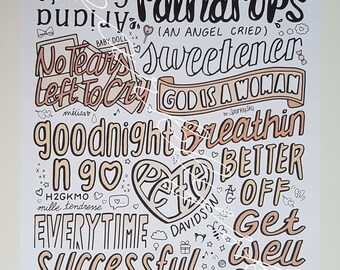 Ariana
raindrops
(AN ANGEL CRIED)
BABY DOLL
No Tears
Left To Cry
sweetener
GOD IS A WOMAN
goodnight
n go
Breathin
H2GKMO
mille tendresse
pete
DAVIDSON
BETTER
OFF
AG
EVERYTIME
Get
Well
successful